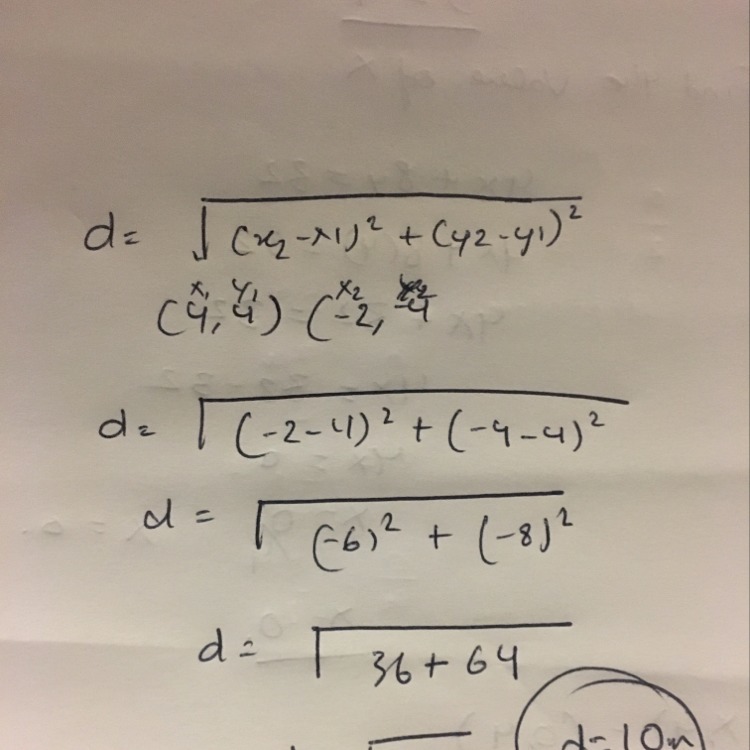 d= √(x₂-x1)² + (y2-y1)²
x₁ y₁ x₂
(4, 4) (-2, -4
d= √(-2-4)² + (-4-4)²
d = √(-6)² + (-8)²
d= √36 + 64
d=10m